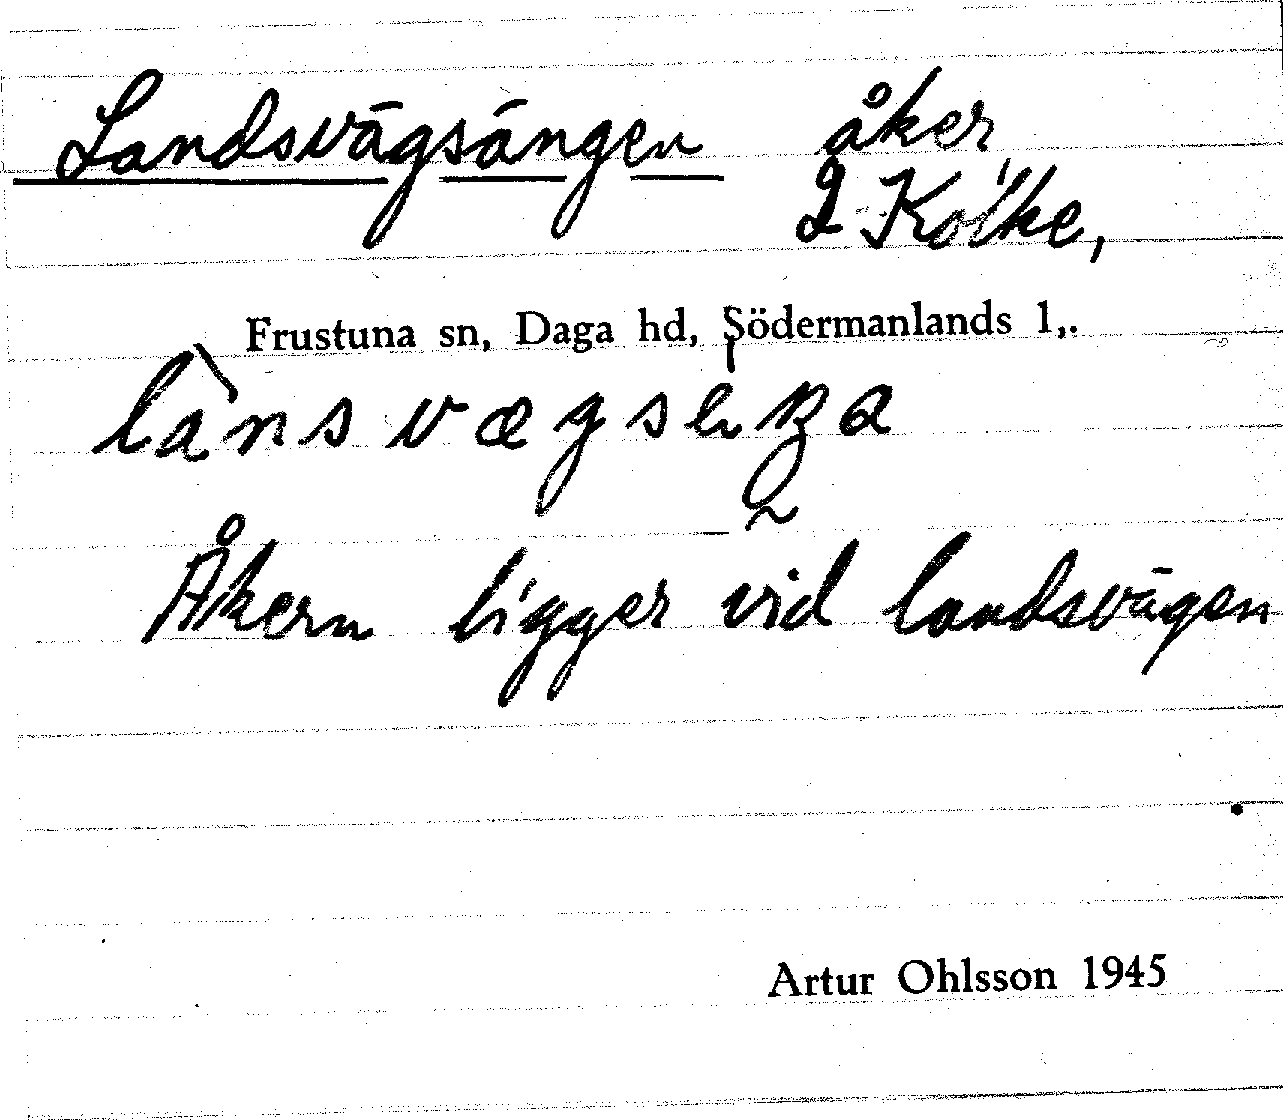 Landsvägsängen åker
2 Kolke,
Frustuna sn, Daga hd, Södermanlands l,.
Åkern ligger vid landsvägen
Artur Ohlsson 1945